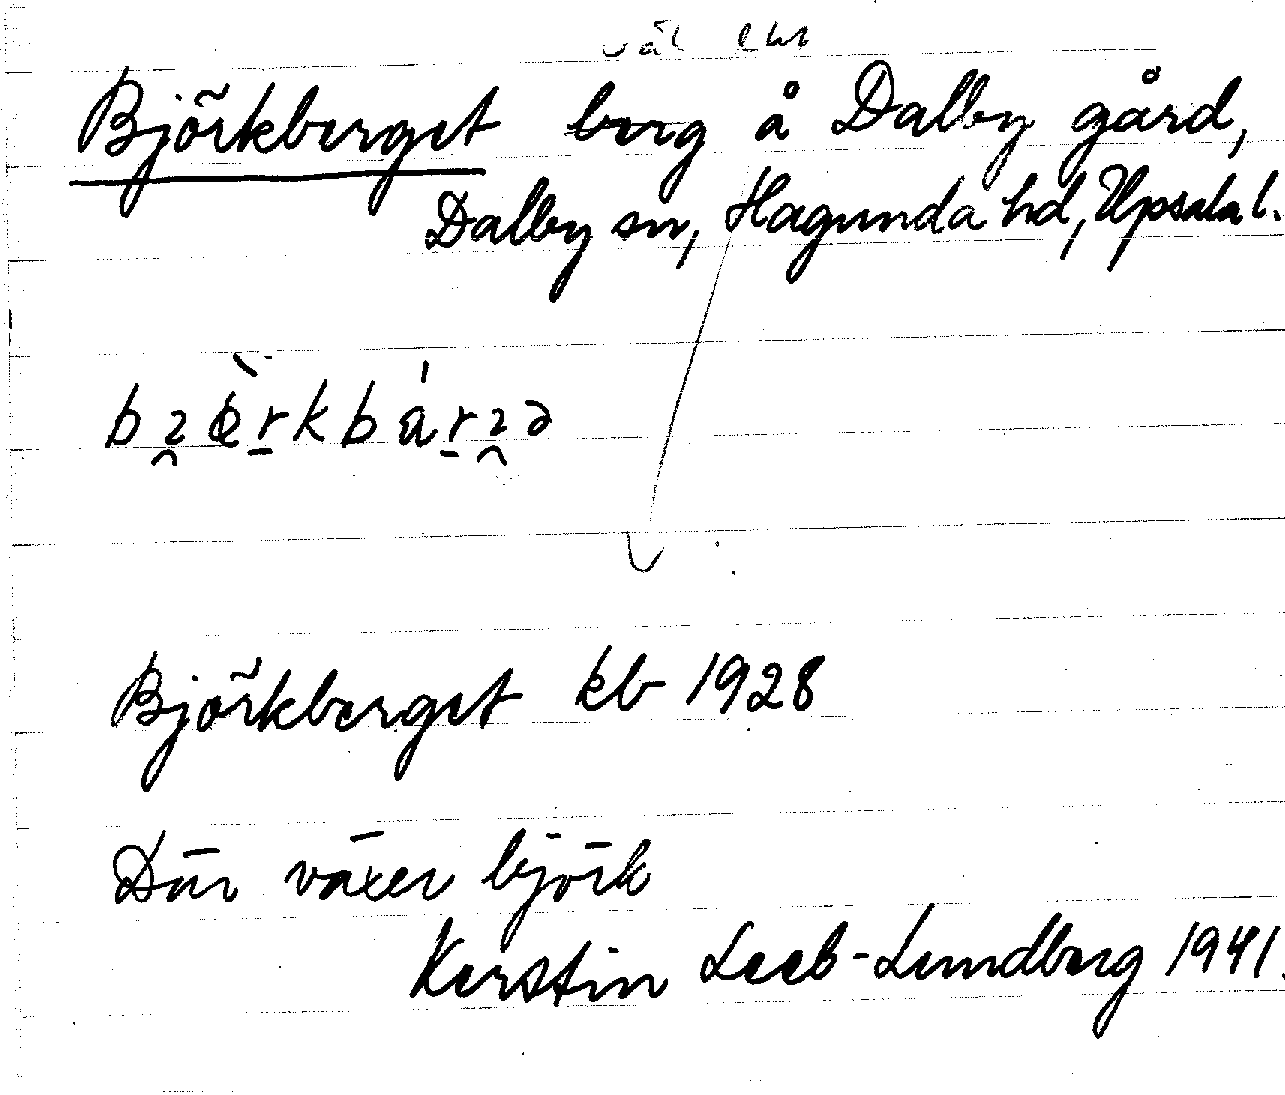 Björkberget berg å Dalby gård,
Dalby sn, Hagunda hd, Upsala l.
Björkberget kb 1928
Där växer björk
Kerstin Leeb-Lundberg 1941.